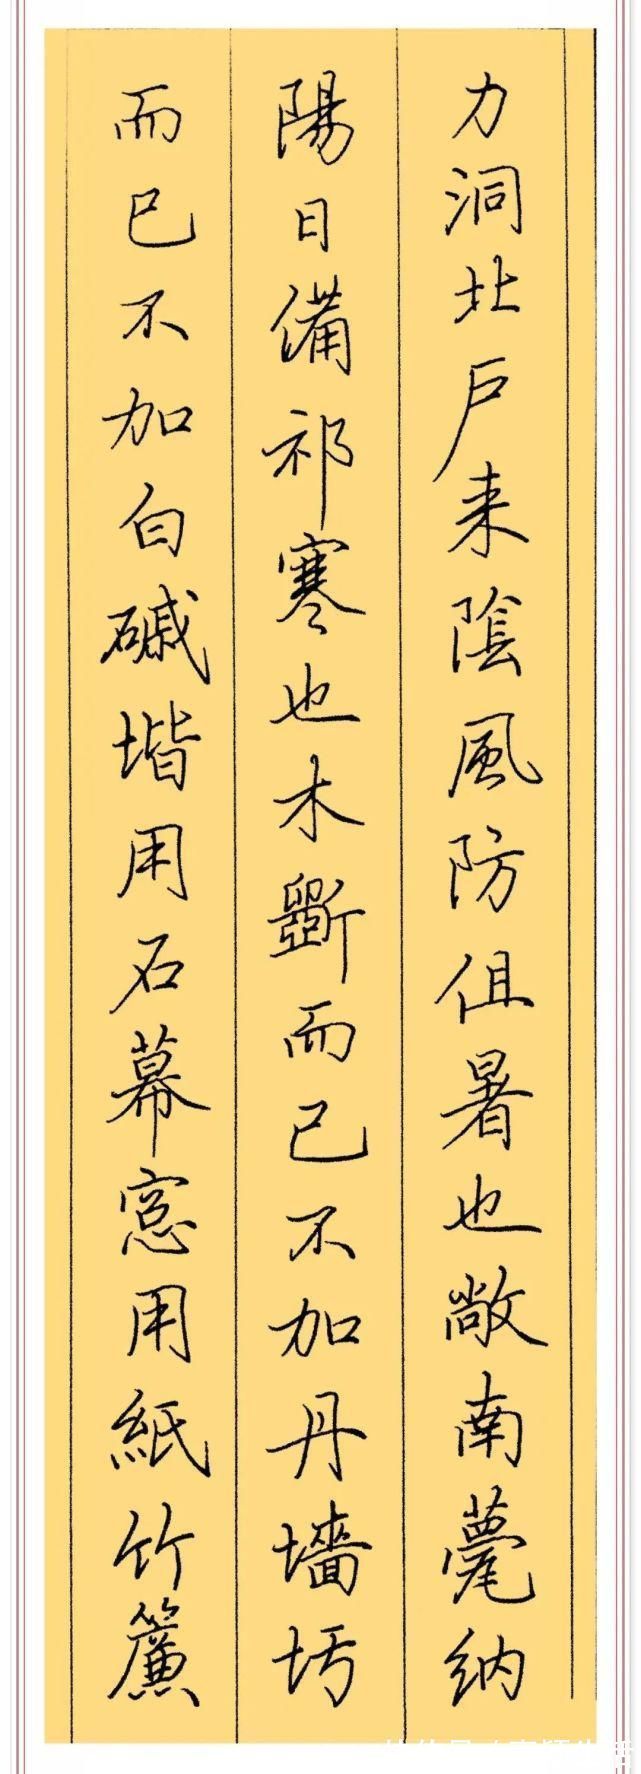 力洞北戶来陰風防徂暑也敞南甍納
陽日備祁寒也木斵而已不加丹墻圬
而已不加白磩堦用石幕窓用紙竹簾